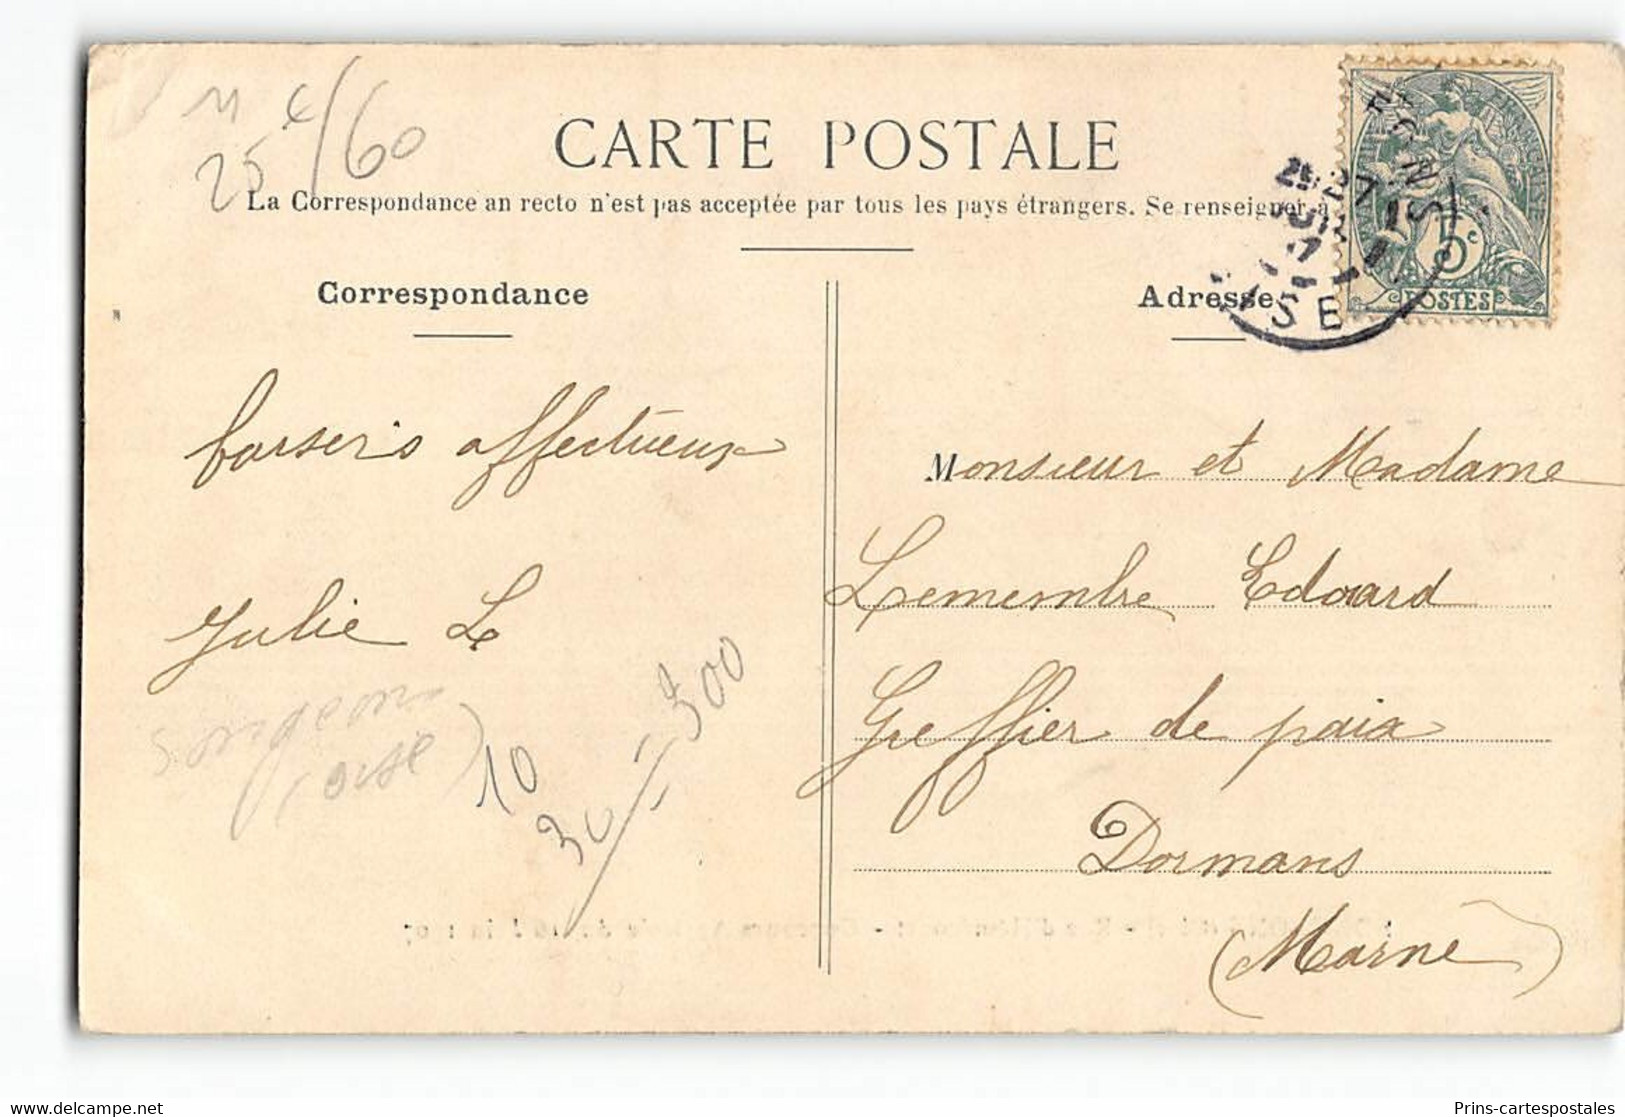 11 €/60
25
CARTE POSTALE
La Correspondance au recto n'est pas acceptée par tous les pays étrangers. Se renseigner à
Correspondance
Adresse
RÉPUBLIQUE FRANÇAISE
5c
POSTES
baisers affectueux
Julie L
10
30/=300
Monsieur et Madame
Lemembre Edouard
Greffier de paix
Dormans
(Marne)
delcampe.net
Prins-cartespostales